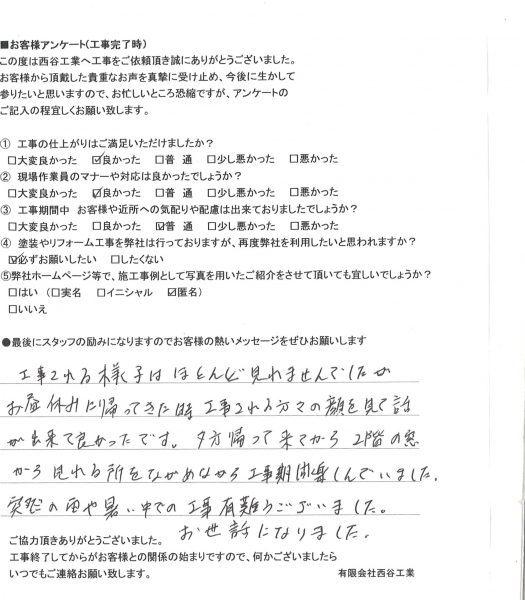 ■お客様アンケート(工事完了時)
この度は西谷工業へ工事をご依頼頂き誠にありがとうございました。
お客様から頂戴した貴重なお声を真摯に受け止め、今後に生かして
参りたいと思いますので、お忙しいところ恐縮ですが、アンケートの
ご記入の程宜しくお願い致します。
① 工事の仕上がりはご満足いただけましたか？
□大変良かった ☑良かった □普 通 □少し悪かった □悪かった
② 現場作業員のマナーや対応は良かったでしょうか？
□大変良かった ☑良かった □普 通 □少し悪かった □悪かった
③ 工事期間中 お客様や近所への気配りや配慮は出来ておりましたでしょうか？
□大変良かった □良かった ☑普 通 □少し悪かった □悪かった
④ 塗装やリフォーム工事を弊社は行っておりますが、再度弊社を利用したいと思われますか？
☑必ずお願いしたい □したくない
⑤弊社ホームページ等で、施工事例として写真を用いたご紹介をさせて頂いても宜しいでしょうか？
□はい （□実名 □イニシャル ☑匿名）
□いいえ
●最後にスタッフの励みになりますのでお客様の熱いメッセージをぜひお願いします
工事される様子はほとんど見れませんでしたが
お昼休みに帰ってきた時工事される方々の顔を見て話
が出来て良かったです。夕方帰って来てから2階の窓
から見れる所をながめながら工事期間楽しんでいました。
突然の雨や暑い中での工事有難うございました。
お世話になりました。
ご協力頂きありがとうございました。
工事終了してからがお客様との関係の始まりですので、何かございましたら
いつでもご連絡お願い致します。 有限会社西谷工業